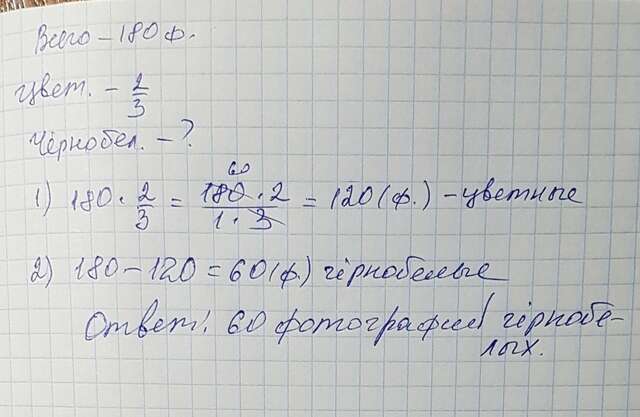 Всего – 180 ф.
Цвет. – 2/3
Чёрнобел. – ?
1) 180 · 2/3 = 60 180 · 2 / 1 · 3 = 120 (ф.) – цветные
2) 180 – 120 = 60 (ф.) чёрнобелые
Ответ: 60 фотографий чёрнобе-
лых.